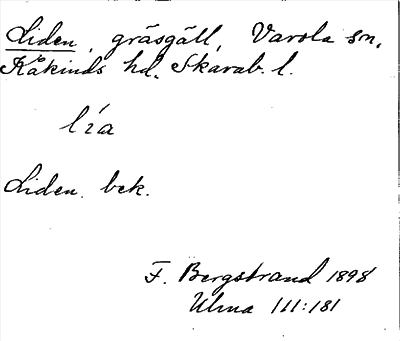 Liden, gräsgäll, Varola sn,
Kåkinds hd. Skarab. l.
lía
Liden. bek.
F. Bergstrand 1898
Ulma 111:181